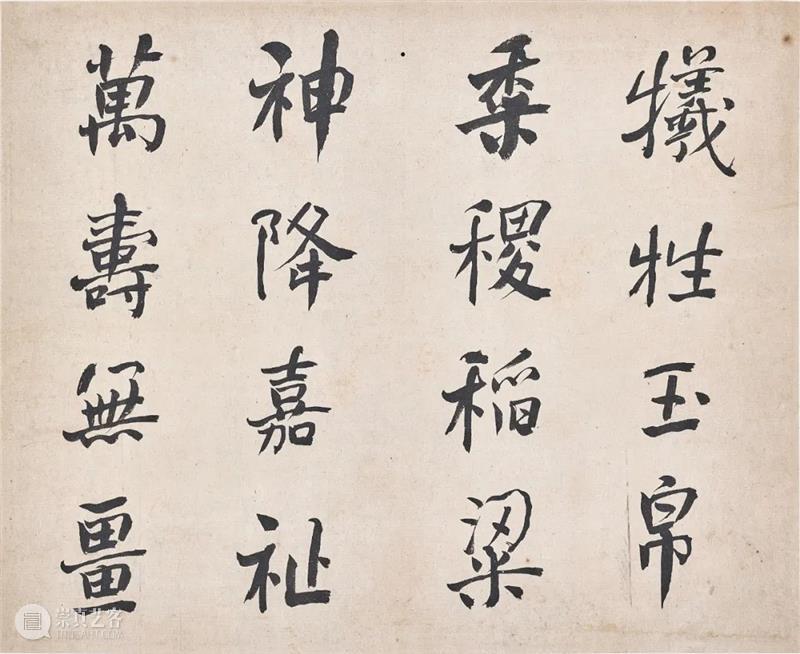 犧牲玉帛
黍稷稻粱
神降嘉祉
萬壽無畺
崇真艺客